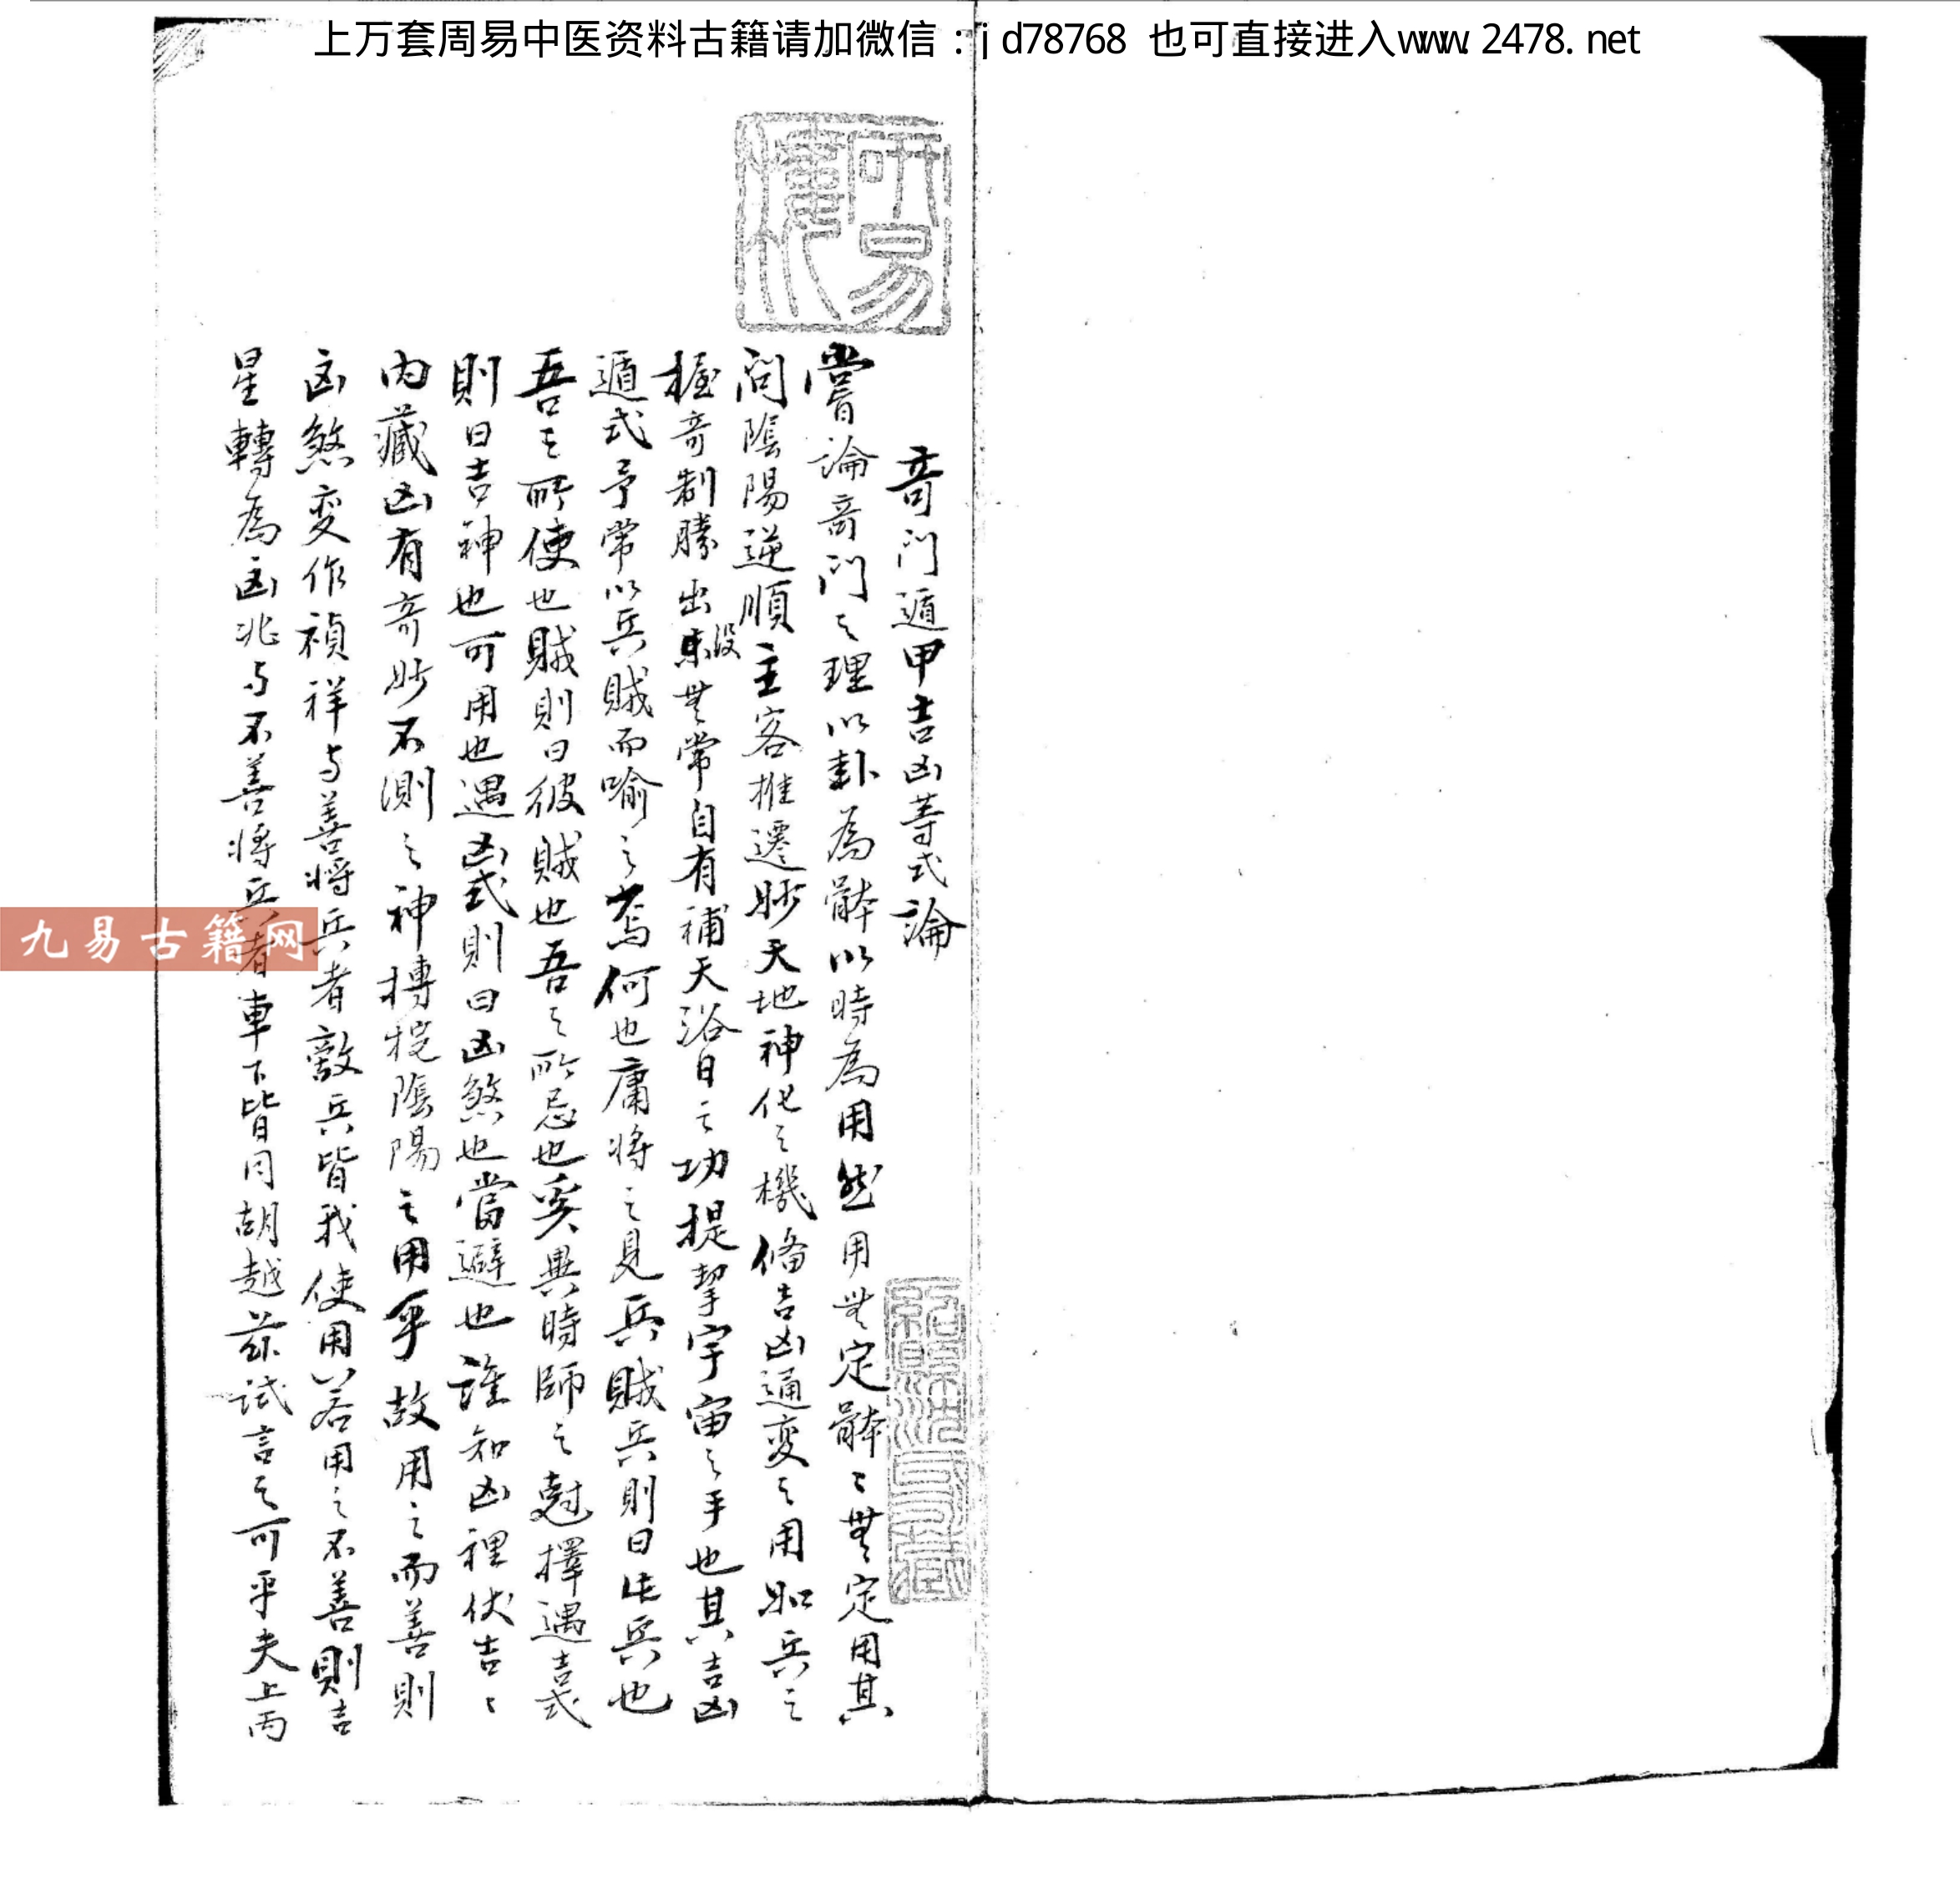 上万套周易中医资料古籍请加微信：jd78768 也可直接进入www.2478.net
研易樓
奇門遁甲吉凶等式論
嘗論奇門之理以卦為骵以時為用然用無定骵〻無定用其
間陰陽逆順主客推遷眇天地神化之機俻吉凶通变之用如兵之
握奇制勝出没未無常自有補天浴日之功提挈宇宙之手也其吉凶
遁式予常以兵賊而喻之焉何也庸将之見兵賊兵則曰此兵也
吾之所使也賊則曰彼賊也吾之所忌也奚異時師之尅擇遇吉式
則曰吉神也可用也遇凶式則曰凶煞也當避也誰知凶裡伏吉〻
内藏凶有奇眇不測之神摶捖陰陽之用乎故用之而善則
凶煞变作禎祥与善将兵者敵兵皆我使用若用之不善則吉
星轉為凶兆与不善将兵者車下皆同胡越茲試言之可乎夫上丙
九易古籍网